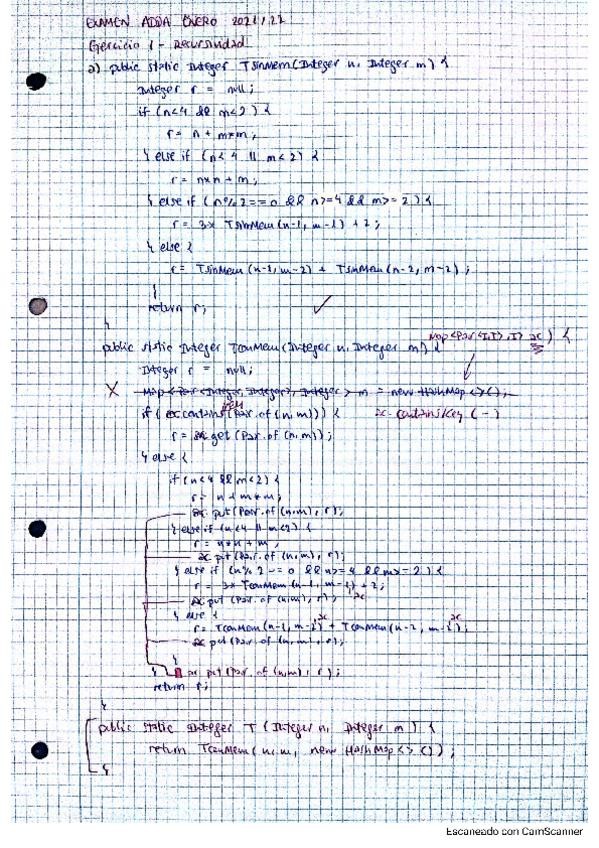 EXAMEN ADDA ENERO 2021/22
Ejercicio 1 - Recursividad
a) public static Integer TsinMem(Integer n, Integer m) {
Integer r = null;
if (n<4 && m<2) {
r = n + m*m;
} else if (n<4 || m<2) {
r = n*n + m;
} else if (n%2==0 && n>=4 && m>=2) {
r = 3* TsinMem(n-1, m-1) + 2;
} else {
r = TsinMem(n-1, m-2) + TsinMem(n-2, m-2);
}
return r;
Map<Par<I,I>,I> ac) {
public static Integer TconMem(Integer n, Integer m) {
Integer r = null;
X Map<Par<Integer, Integer>, Integer> m = new HashMap<>();
if (ac.contains(Par.of(n,m))) { ac.containsKey(-)
r = ac.get(Par.of(n,m));
} else {
if (n<4 && m<2) {
r = n + m*m;
ac.put(Par.of(n,m), r);
} else if (n<4 || m<2) {
r = n*n + m;
ac.put(Par.of(n,m), r);
} else if (n%2==0 && n>=4 && m>=2) {
r = 3* TconMem(n-1, m-1) + 2;
ac.put(Par.of(n,m), r); ac
} else {
r = TconMem(n-1, m-2) + TconMem(n-2, m-2);
ac.put(Par.of(n,m), r);
}
} ac.put(Par.of(n,m), r);
return r;
}
public static Integer T(Integer n, Integer m) {
return TconMem(n, m, new HashMap<>());
}
Escaneado con CamScanner